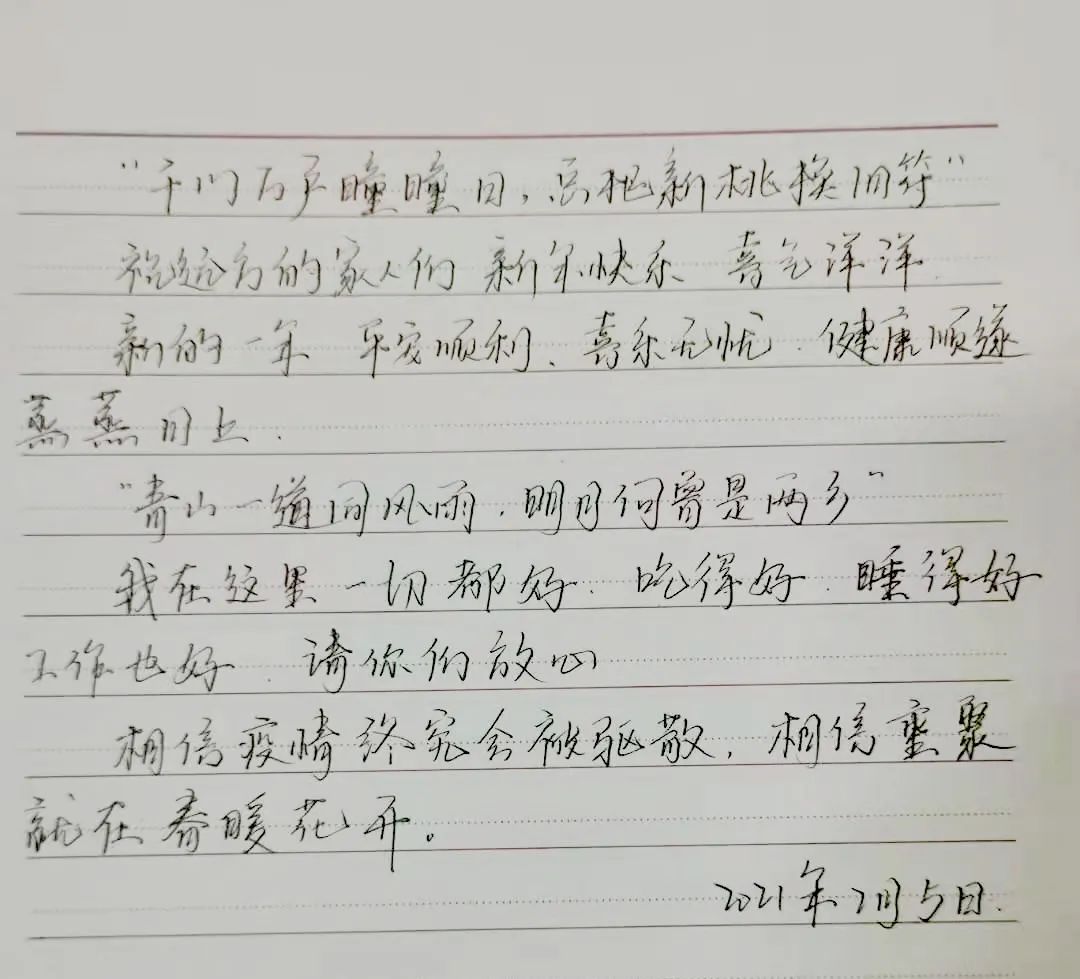 “千门万户瞳瞳日,总把新桃换旧符”
祝远方的家人们 新年快乐 喜气洋洋
新的一年 平安顺利、喜乐无忧.健康顺遂
蒸蒸日上.
“青山一道同风雨.明月何曾是两乡”
我在这里一切都好.吃得好.睡得好
工作也好.请你们放心
相信疫情终究会被驱散,相信重聚
就在春暖花开。
2021年2月5日.